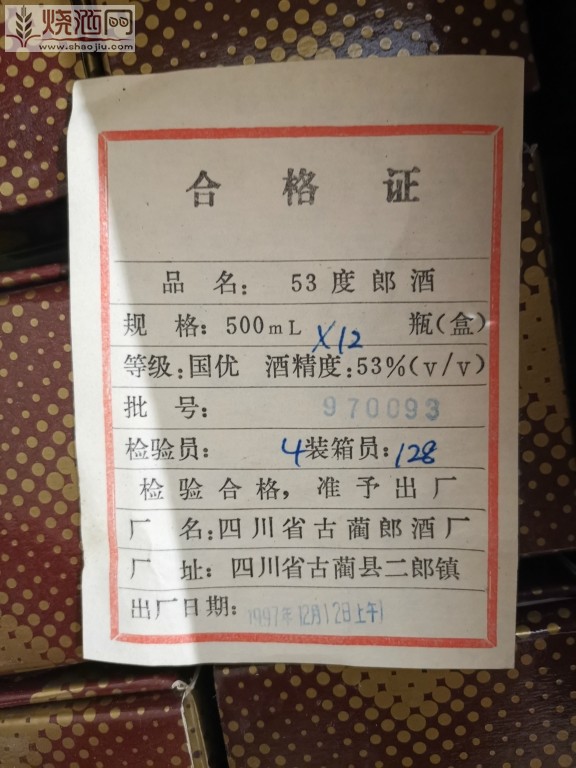 烧酒网
www.shaojiu.com
合格证
品名: 53度郎酒
规格: 500mL X12 瓶(盒)
等级:国优 酒精度:53%(v/v)
批号: 970093
检验员: 4 装箱员: 128
检验合格,准予出厂
厂名:四川省古蔺郎酒厂
厂址: 四川省古蔺县二郎镇
出厂日期: 1997年12月12日上午